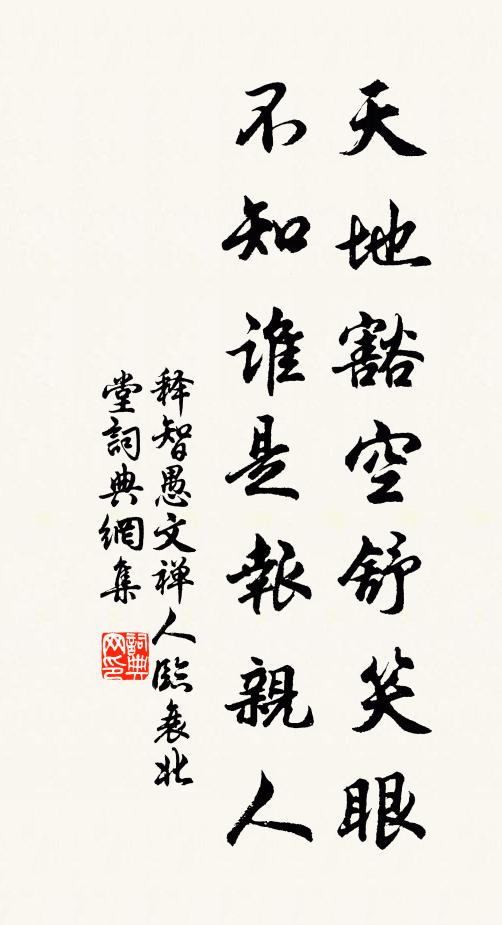 天地豁空舒笑眼
不知誰是報親人
释智愚文禅人臨喪北
堂詞典網集
詞典網印